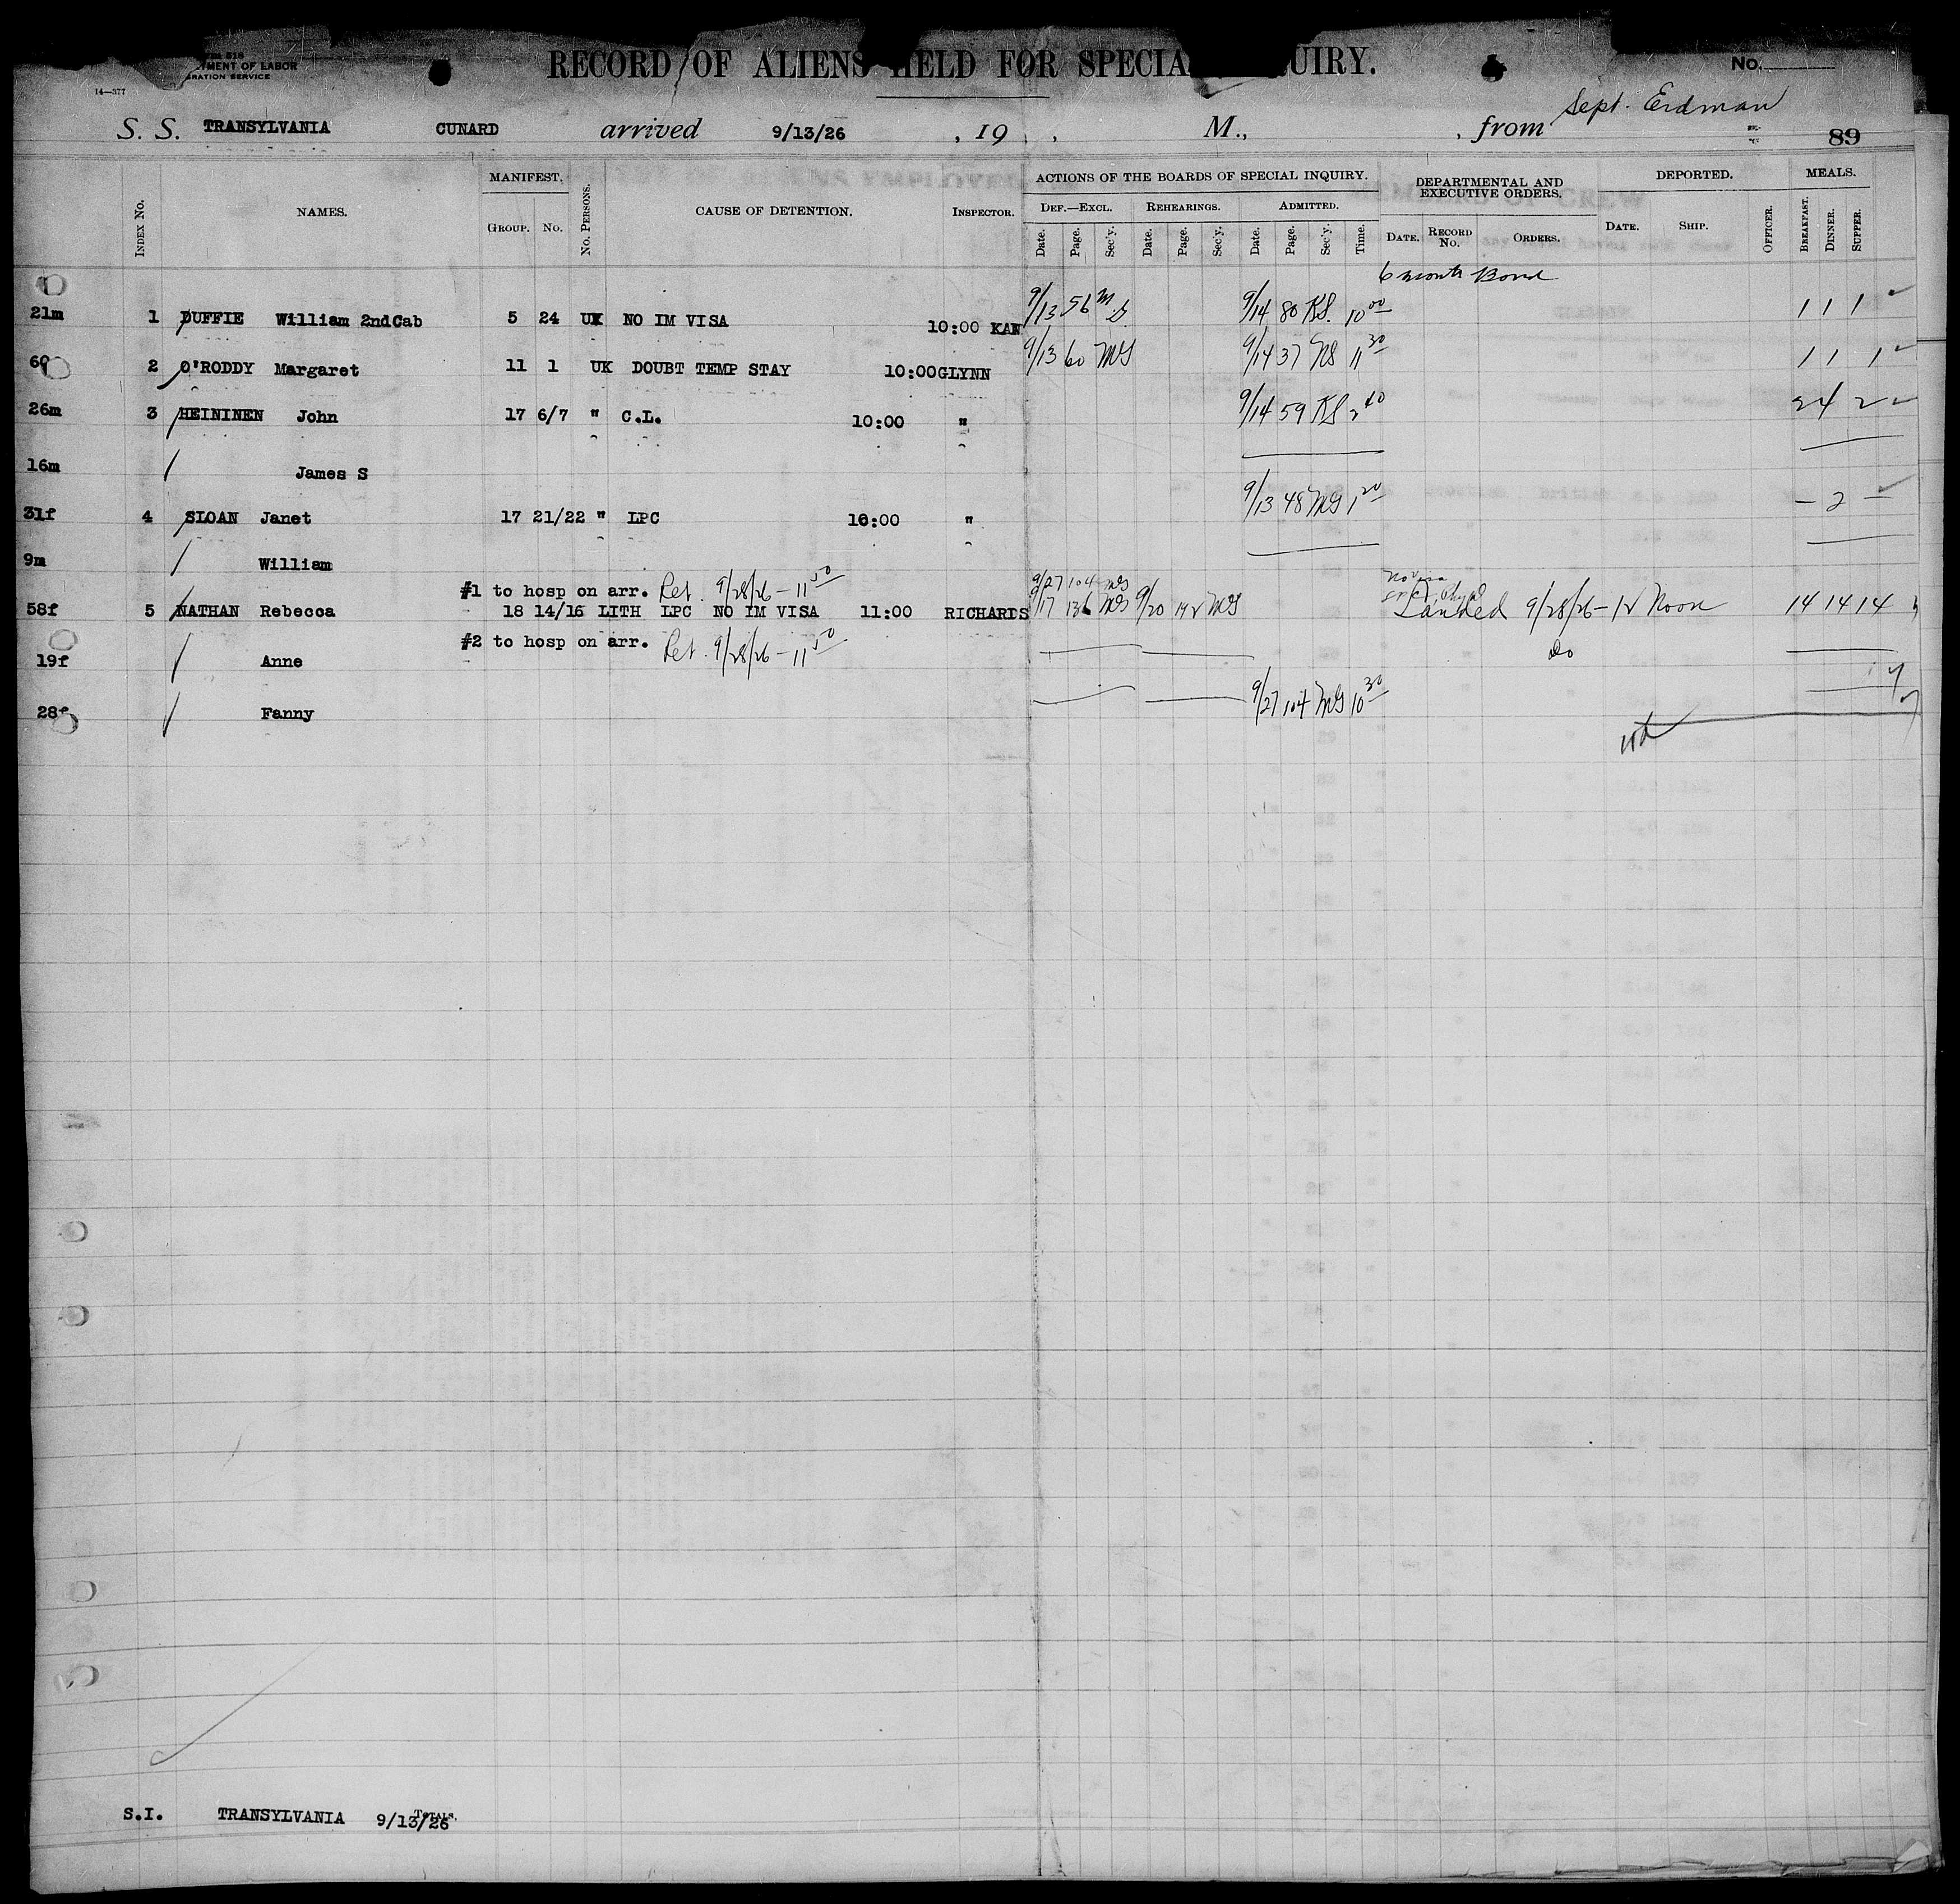 518
MENT OF LABOR
RATION SERVICE
14—377
RECORD OF ALIENS HELD FOR SPECIA UIRY.
No.
Sept. Erdman
S. S. TRANSYLVANIA CUNARD arrived 9/13/26 , 19 , M., , from 89
Index No. NAMES. MANIFEST. Group. No. No. Persons. CAUSE OF DETENTION. Inspector. ACTIONS OF THE BOARDS OF SPECIAL INQUIRY. Def.—Excl. Date. Page. Sec'y. Rehearings. Date. Page. Sec'y. Admitted. Date. Page. Sec'y. Time. DEPARTMENTAL AND EXECUTIVE ORDERS. Date. Record No. Orders. DEPORTED. Date. Ship. Officer. MEALS. Breakfast. Dinner. Supper.
6 month Bond
21m 1 DUFFIE William 2ndCab 5 24 UK NO IM VISA 10:00 KAN 9/13 56 9/14 80 KS 10 00 1 1 1
2 O'RODDY Margaret 11 1 UK DOUBT TEMP STAY 10:00 GLYNN 9/13 60 MS 9/14 37 11 30 1 1 1
26m 3 HEININEN John 17 6/7 " C.L. 10:00 " 9/14 59 KS 2 40 2 4 2
16m James S
31f 4 SLOAN Janet 17 21/22 " LPC 10:00 " 9/13 48 MS 1 20 – 2 –
9m William
#1 to hosp on arr. Ret. 9/28/26 – 11 50 9/27 104 MS
58f 5 NATHAN Rebecca 18 14/16 LITH LPC NO IM VISA 11:00 RICHARDS 9/17 136 MS 9/20 142 MS Landed 9/28/26 – 12 Noon 14 14 14
#2 to hosp on arr. Ret. 9/28/26 – 11 50
19f Anne do
28f Fanny 9/27 104 MS 10 30
S.I. TRANSYLVANIA 9/13/26 Totals.